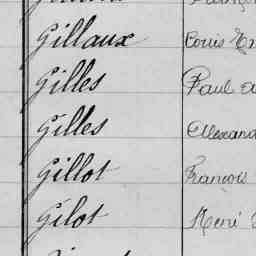 Gillaux Louis
Gilles Paul
Gilles Alexand
Gillot François
Gilot René